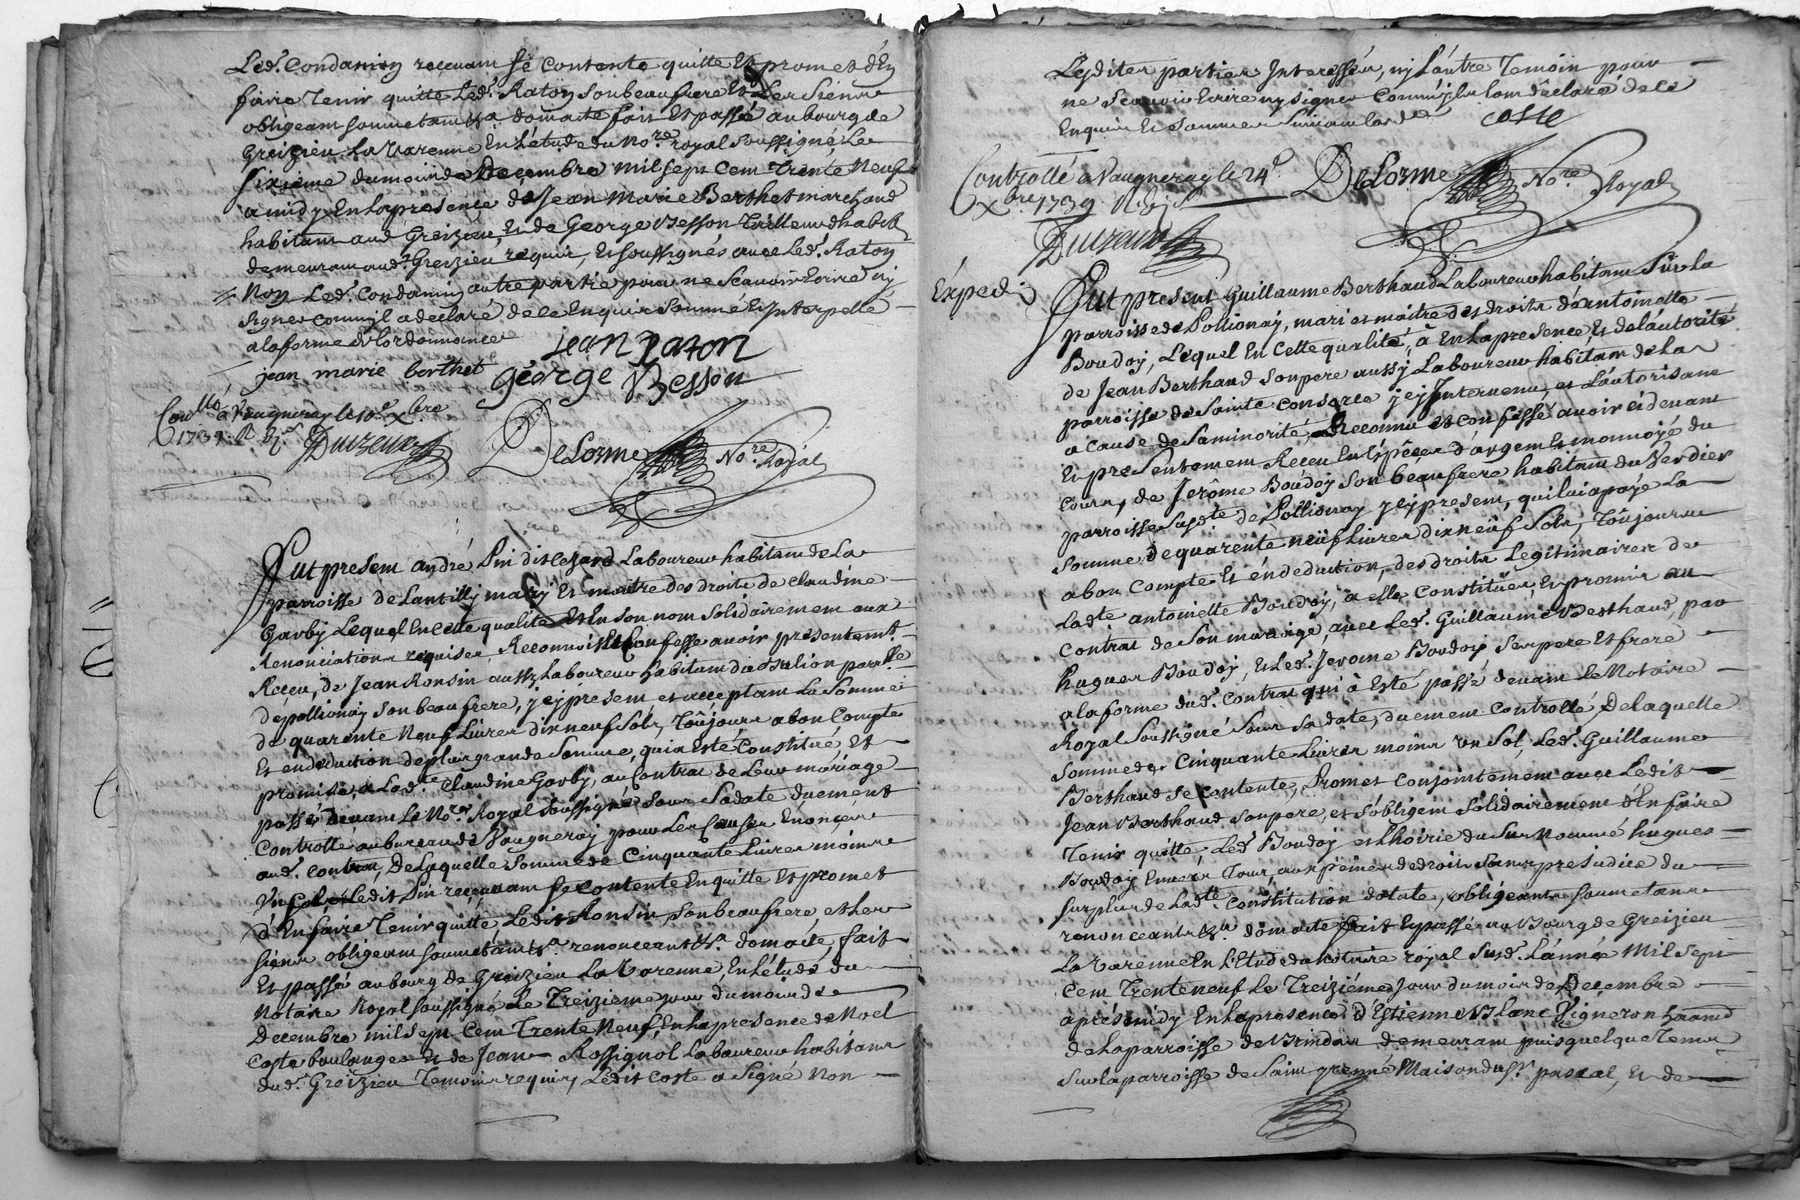 Led. Condamin recevant se contente quitte Et promet d'En
faire Tenir quitte Led. Raton son beaufrere Et Les Siens
obligeant soumetant &a domacte fait Et passé au bourg de
Greizieu La Varenne En L'étude du No.re royal soussigné Le
sixieme du mois de Decembre mil sept Cent Trente Neuf
a midy En la presence de Jean Marie Berthet marchand
habitant aud. Greizieu, Et de George Besson Tailleur d'habits
demeurant aud. Greizieu requis, Et soussignés avec Led. Raton
Non Led. Condamin autre partie pour ne scavoir Ecrire ny
signer comm'il a declaré de ce Enquis sommé Et Interpellé
a la forme de l'ordonnance
jean raton
jean marie berthet
George Besson
Con.llé à Vaugneray le 10.e xbre
1739. R
DeLorme No.re Royal
Fut present andré Pin dit Cezard Laboureur habitant de La
parroisse de Lantilly mary Et maitre des droits de Claudine
Garby Lequel En cette qualité Et En son nom solidairement aux
Renonciations requises, Reconnoist Et Confesse avoir presentemt.
Receu, de Jean Ronsin aussy Laboureur habitant parr.sse
de pollionay son beaufrere, jcy present et acceptant La somme
de quarente Neuf Livres dixneuf sols, Toûjours a bon Compte
Et en deduction de plus grande somme, qui a Esté Constitué, Et
promise, a Lad.te Claudine Garby, au Contrat de Leur mariage
passé devant Le No.re Royal soussigné sous sa date duement
Controllé au bureau de Vaugneray pour Les Causes Enoncées
aud. Contrat, De Laquelle somme de Cinquante Livres moins
Un sol, Ledit Pin recevant se contente En quitte Et promet
d'En faire Tenir quitte, Ledit Ronsin, son beaufrere, et les
siens obligeant soumetant &a renonceant &a. domacte, fait
Et passé au bourg de Greizieu La Varenne, En L'étude du
Notaire Royal soussigné Le Treizieme jour du mois de
Decembre mil sept Cent Trente Neuf, En la presence de Noel
Coste boulanger Et de Jean Rossignol Laboureur habitans
dud. Greizieu Temoins requis, Ledit Coste a signé Non
Lesdites parties Interessées, ny L'autre Temoin pour
ne scavoir Ecrire ny signer comm'ils l'ont declaré de ce
Enquis Et sommés suivant l'ord.ce
coste
Controllé a Vaugneray le 24.e
xbre 1739. R
DeLorme No.re Royal
Exped.
Fut present Guillaume Berthaud Laboureur habitant sur La
parroisse de Pollionay, mari et maitre des droits d'antoinette
Boudoy, Lequel En Cette qualité, à En La presence, Et de L'autorité
de Jean Berthaud son pere aussy Laboureur habitant de La
parroisse de Sainte Consorce jcy Intervenu, et L'autorisant
a cause de sa minorité, Reconnu et confessé avoir cidevant
Et presentement Receu En Espèces d'argent Et monnoyé du
Cours, de Jerôme Boudoy son beaufrere habitant du Verdier
parroisse susd.te de Pollionay jcy present, qui lui a payé La
somme de quarente neuf Livres dixneuf sols, Toûjours
a bon Compte Et én deduction, des droits Legitimaires de
lad.te antoinette Boudoy, a elle Constituer, Et promis au
contrat de son mariage, avec Led. Guillaume Berthaud, par
hugues Boudoy, Et Led. Jerome Boudoy ses pere Et frere
a la forme dud. Contrat qui à Esté passé devant Le Notaire
Royal soussigné sous sa date, duement Controllé, De laquelle
somme de Cinquante Livres moins un sol, Led. Guillaume
Berthaud se contente, Promet conjointement avec Ledit
Jean Berthaud son pere, et s'obligent solidairement d'En faire
Tenir quitte, Led. Boudoy et L'hoirie du surnommé hugues
Boudoy Envers Tous, aux peines de droit sans prejudice du
surplus de Lad.te Constitution dotale, obligeants soumetans
renonceants &a. domacte fait Et passé au Bourg de Greizieu
La Varenne En L'Etude du notaire royal susd. L'année Mil sept
Cent Trente neuf Le Treiziéme Jour du mois de Decembre
aprésmidy En la presence d'Estienne Blanc Vigneron
de La parroisse de Brindas demeurant puis quelque Tems
sur la parroisse de Saint genné Maison du S.r pascal, Et de